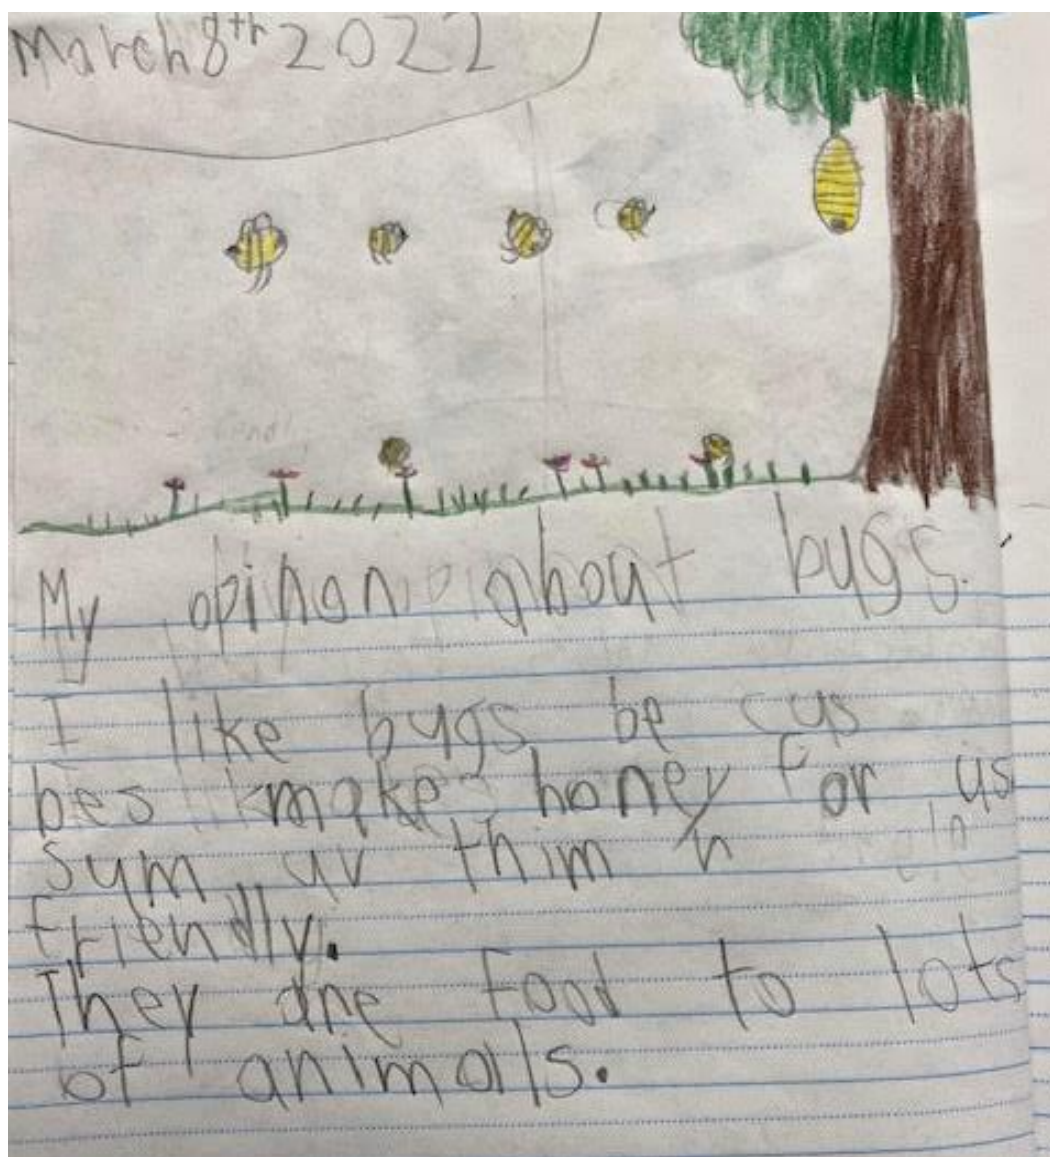 March 8th 2022
My opinon about bugs.
I like bugs be cus
bes make honey for us
sum uv thim
friendly.
They are food to lots
of animals.